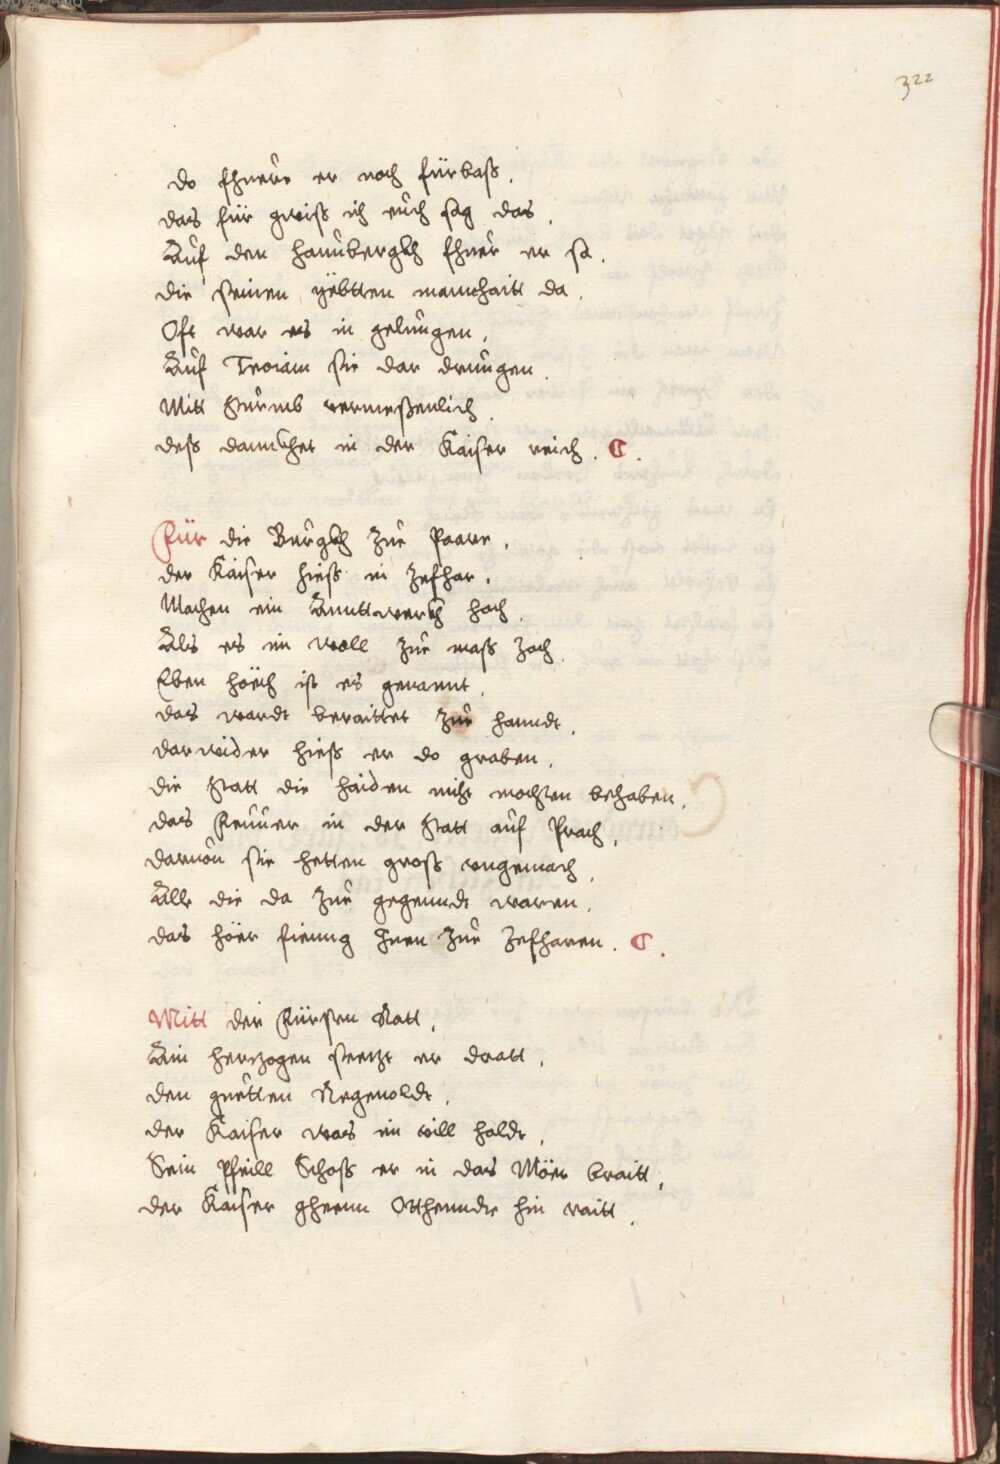 322
do fhuere er noch fürbaß.
das für gwiß ich euch sag das.
Auf den hannbergkh fhuer er sa.
die seinen yebtten mannhaitt da.
Oft war es in gelungen.
Auf Troiam sie dar drungen.
Mitt Sturmb vermeßenlich.
deß danckhet in der Kaiser reich. C.
Für die Burgkh zue Paare.
der Kaiser hieß in Zefhar.
Machen ein Anuttwerckh hoch.
Als es im woll zue maß zoch.
Eben höech ist es genannt.
das wardt beraittet zue hanndt.
darwider hieß er do graben.
die Statt die haiden nicht mochten behaben.
das Feuuer in der Statt auf Prach.
daruon sie hetten groß vngemach.
Alle die da zue gegenndt waren.
das höer fieng Inen zue Zefharen. C.
Mitt der Fürsten Ratt.
Ain hertzogen seetzt er dratt.
den guetten Regenoldt.
der Kaiser was im vill holdt.
Sein Pfeill Schoß er in das Möer braitt.
der Kaiser gheenn Otthenndre hin raitt.